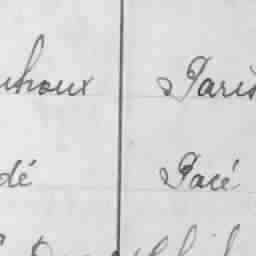 uhoux Paris
dé Pacé